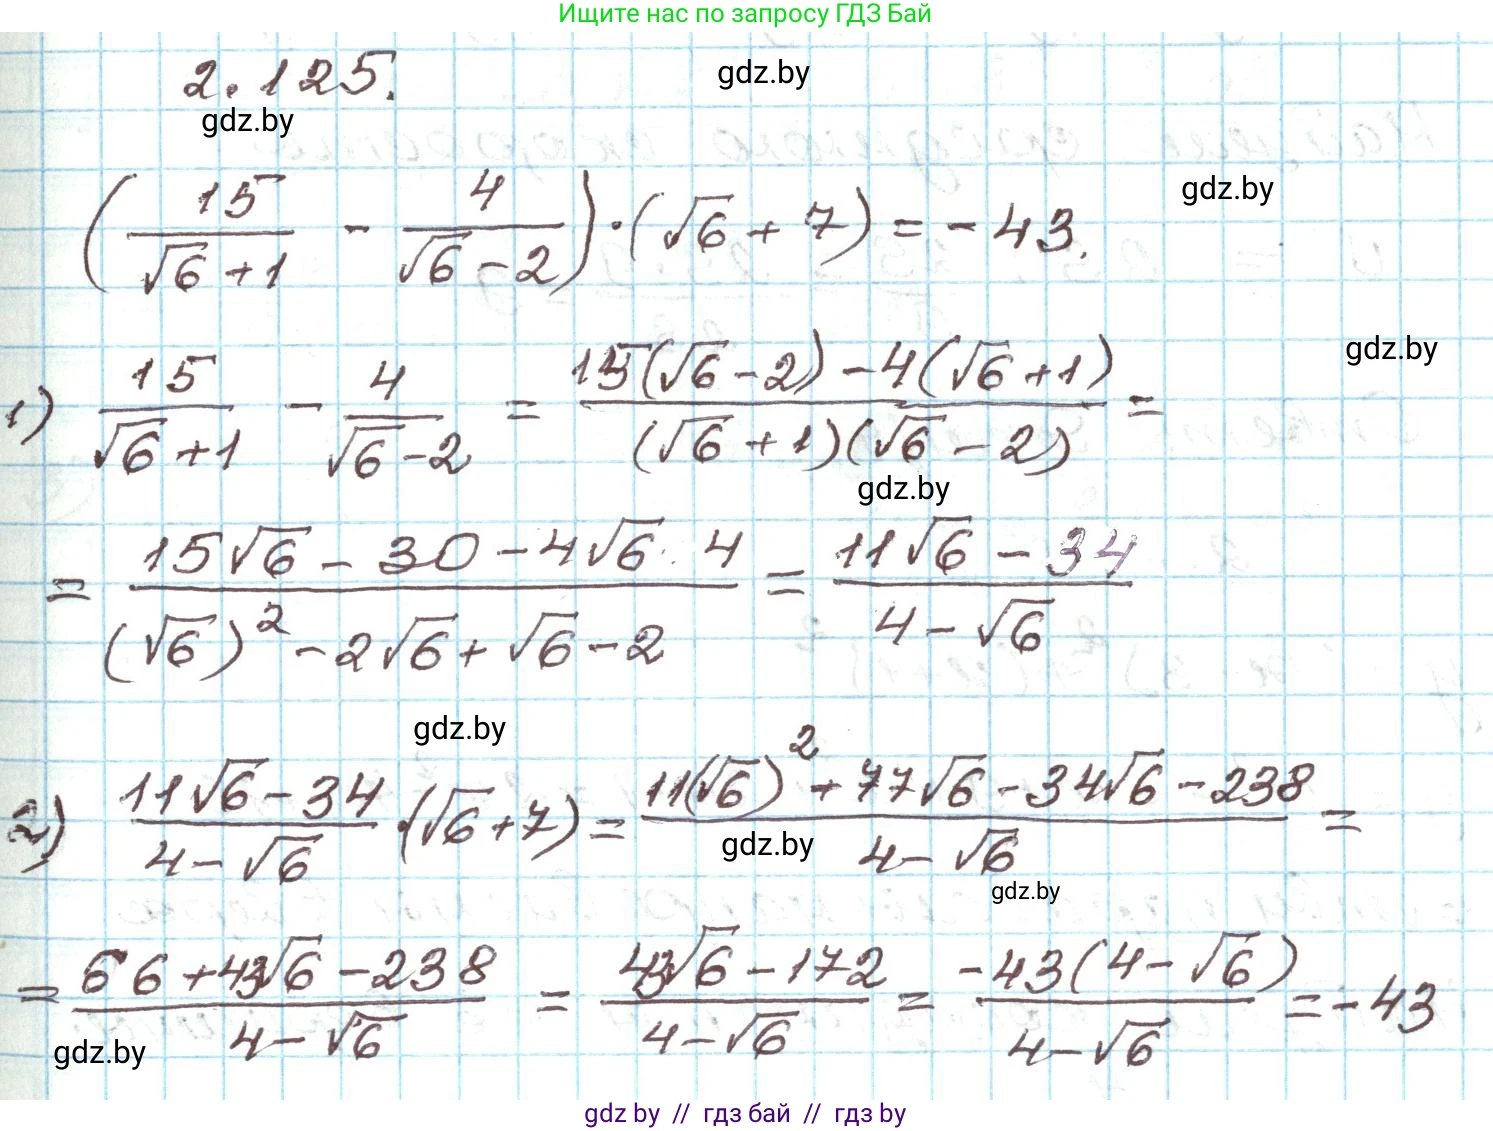 Ищите нас по запросу ГДЗ Бай
2.125.
gdz.by
gdz.by
(15/(√6+1) - 4/(√6-2))·(√6+7) = -43.
gdz.by
gdz.by
1) 15/(√6+1) - 4/(√6-2) = (15(√6-2)-4(√6+1))/((√6+1)(√6-2)) =
gdz.by
= (15√6-30-4√6·4)/((√6)²-2√6+√6-2) = (11√6-34)/(4-√6)
gdz.by
2) (11√6-34)/(4-√6)·(√6+7) = (11(√6)²+77√6-34√6-238)/(4-√6) =
gdz.by
gdz.by
= (66+43√6-238)/(4-√6) = (43√6-172)/(4-√6) = (-43(4-√6))/(4-√6) = -43
gdz.by
gdz by // гдз бай // гдз by